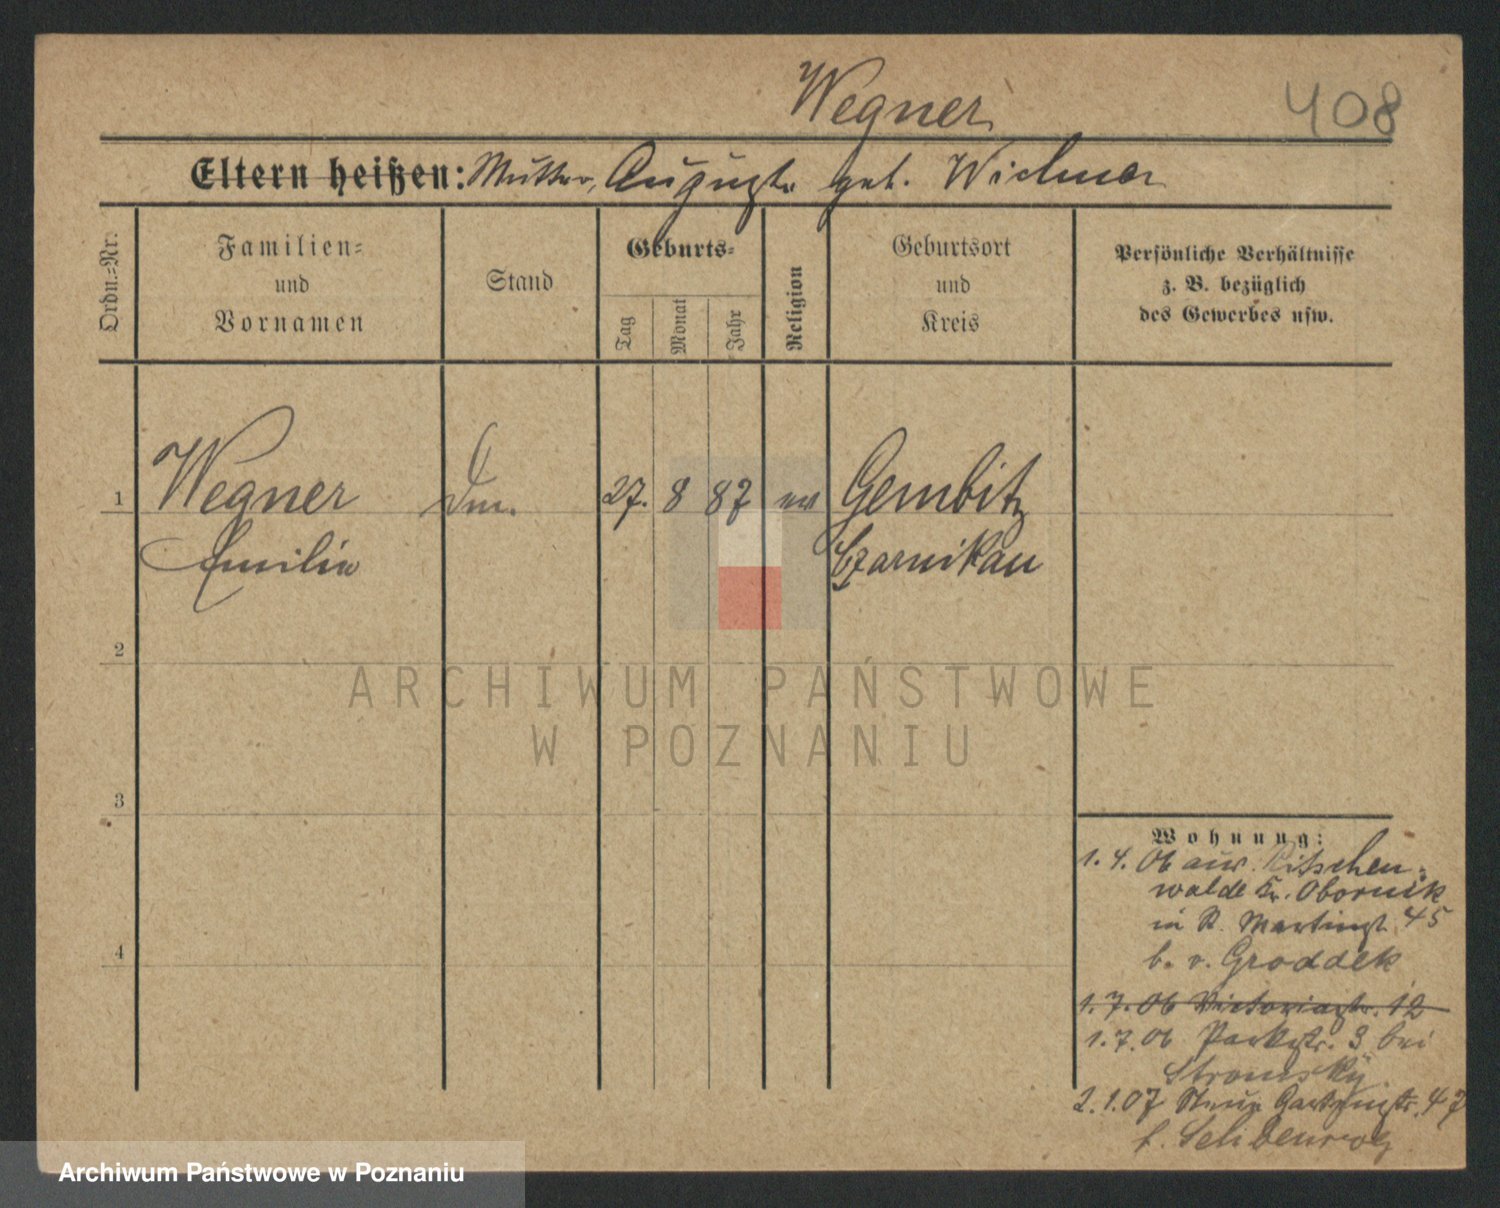 Wegner
408
Eltern heißen: Mutter, Auguste geb. Widmer
Ordn.=Nr.
Familien=
und
Vornamen
Stand
Geburts=
Tag
Monat
Jahr
Religion
Geburtsort
und
Kreis
Persönliche Verhältnisse
z. B. bezüglich
des Gewerbes usw.
1
Wegner
27. 8 87 ev
Gembitz
Emilie
Czarnikau
2
ARCHIWUM PAŃSTWOWE
W POZNANIU
3
Wohnung:
1. 4. 06 aus Ritschen=
walde Kr. Obornik
in St. Martinstr. 45
b. v. Groddek
4
1. 7. 06 Victoriastr. 12
1. 7. 06 Parkstr. 3 bei
Stromsky
2. 1. 07 Neue Gartenstr. 47
Archiwum Państwowe w Poznaniu